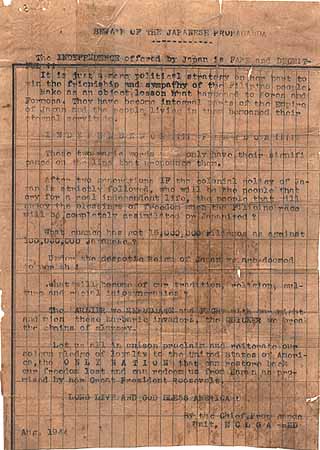 BEWARE OF THE JAPANESE PROPAGANDA
The INDEPENDENCE offered by Japan is FAKE and DECEIT-
FUL !!
It is just a mere political strategy on her part to
win the friendship and sympathy of the Filipino people.
Take as an object lesson what happened to Korea and
Formosa. They have become integral parts of the Empire
of Japan and the people living in them becomes their
eternal
I N D E P E N D E N C E F R E E D O M
These two words only have their signifi-
cance on the lips that
After two generations IF the colonial policy of Ja-
pan is strictly followed, who will be the people that
cry for a real independent life, the people that will
enjoy the blessings of freedom when the Filipino race
will be completely assimilated by Japanized?
What chance has got 16,000,000 Filipinos as against
100,000,000 Japanese?
Under the despotic Reign of Japan we are doomed
to perish!
What will become of our tradition, religion, cul-
ture and racial
The EARLIER we REPUDIATE and FIGHT with our might
and means these barbaric invaders, the QUICKER we break
the chains of slavery.
Let us all in unison proclaim and reiterate our
solemn pledge of loyalty to the united States of Ameri-
ca, the O N L Y N A T I O N that can restore back
our freedom lost and can redeem us from Japan as pro-
mised by her Great President Roosevelt.
LONG LIVE AND GOD BLESS AMERICA!
By the Chief, Propaganda
Unit,
Aug.